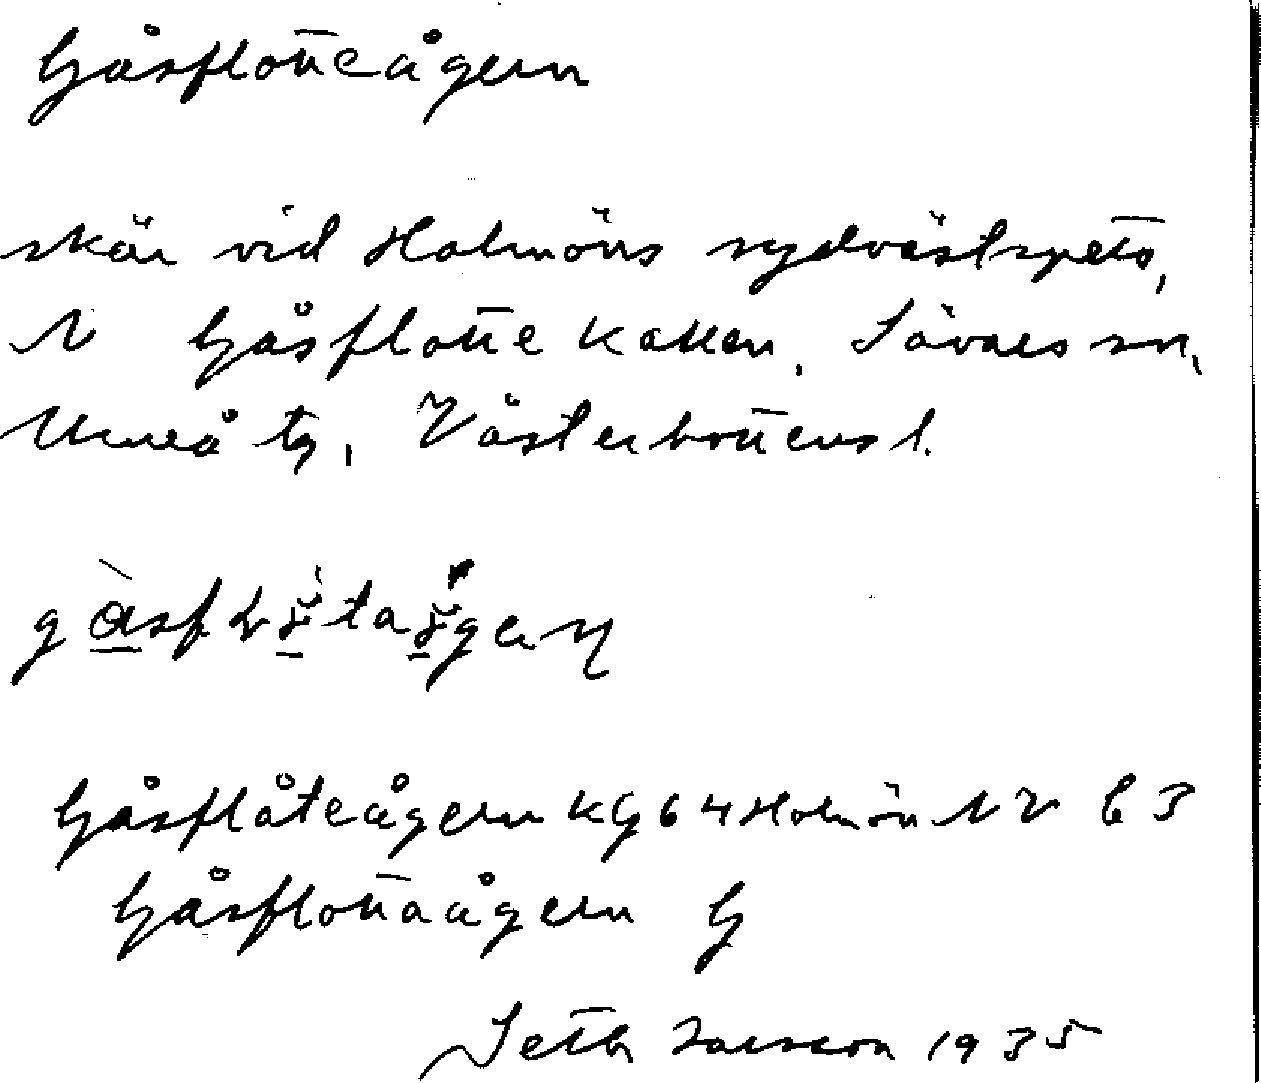 Gåsflotteågern
skär vid Holmöns sydvästspets,
N Gåsflottekallen, Sävars sn,
Umeå tg, Västerbottens l.
Gåsflåteågern KG64 Holmön NV b3
Gåsflottaågern G
Seth Larsson 1935